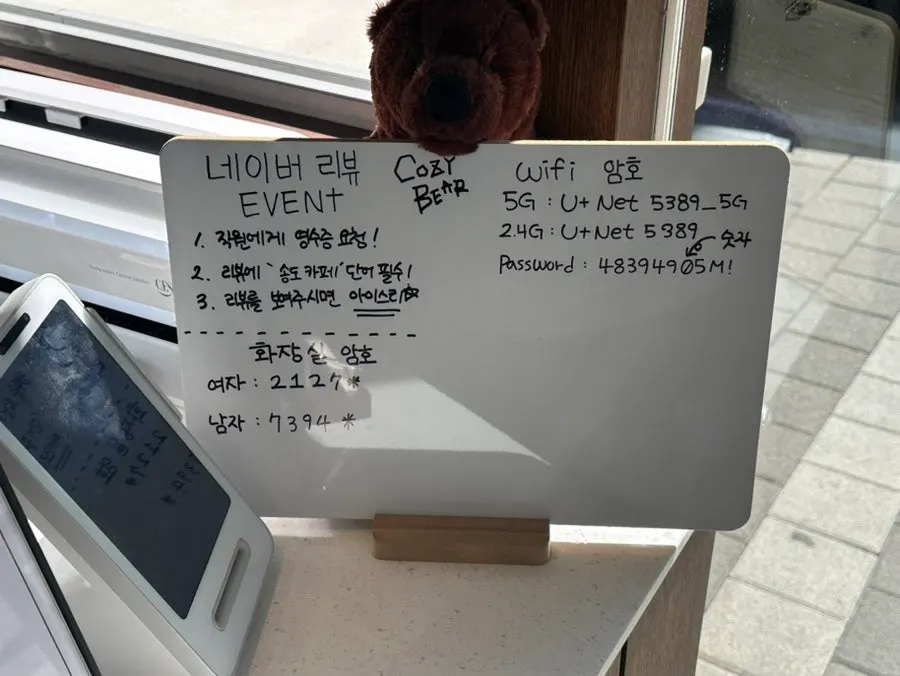 네이버 리뷰
EVENT
1. 직원에게 영수증 요청!
2. 리뷰에 '송도카페' 단어 필수!
3. 리뷰를 보여주시면 아이스티
화장실 암호
여자 : 2127*
남자 : 7394*
COZY
BEAR
Wifi 암호
5G : U+ Net 5389_5G
2.4G : U+Net 5389
숫자
Password : 48394905M!